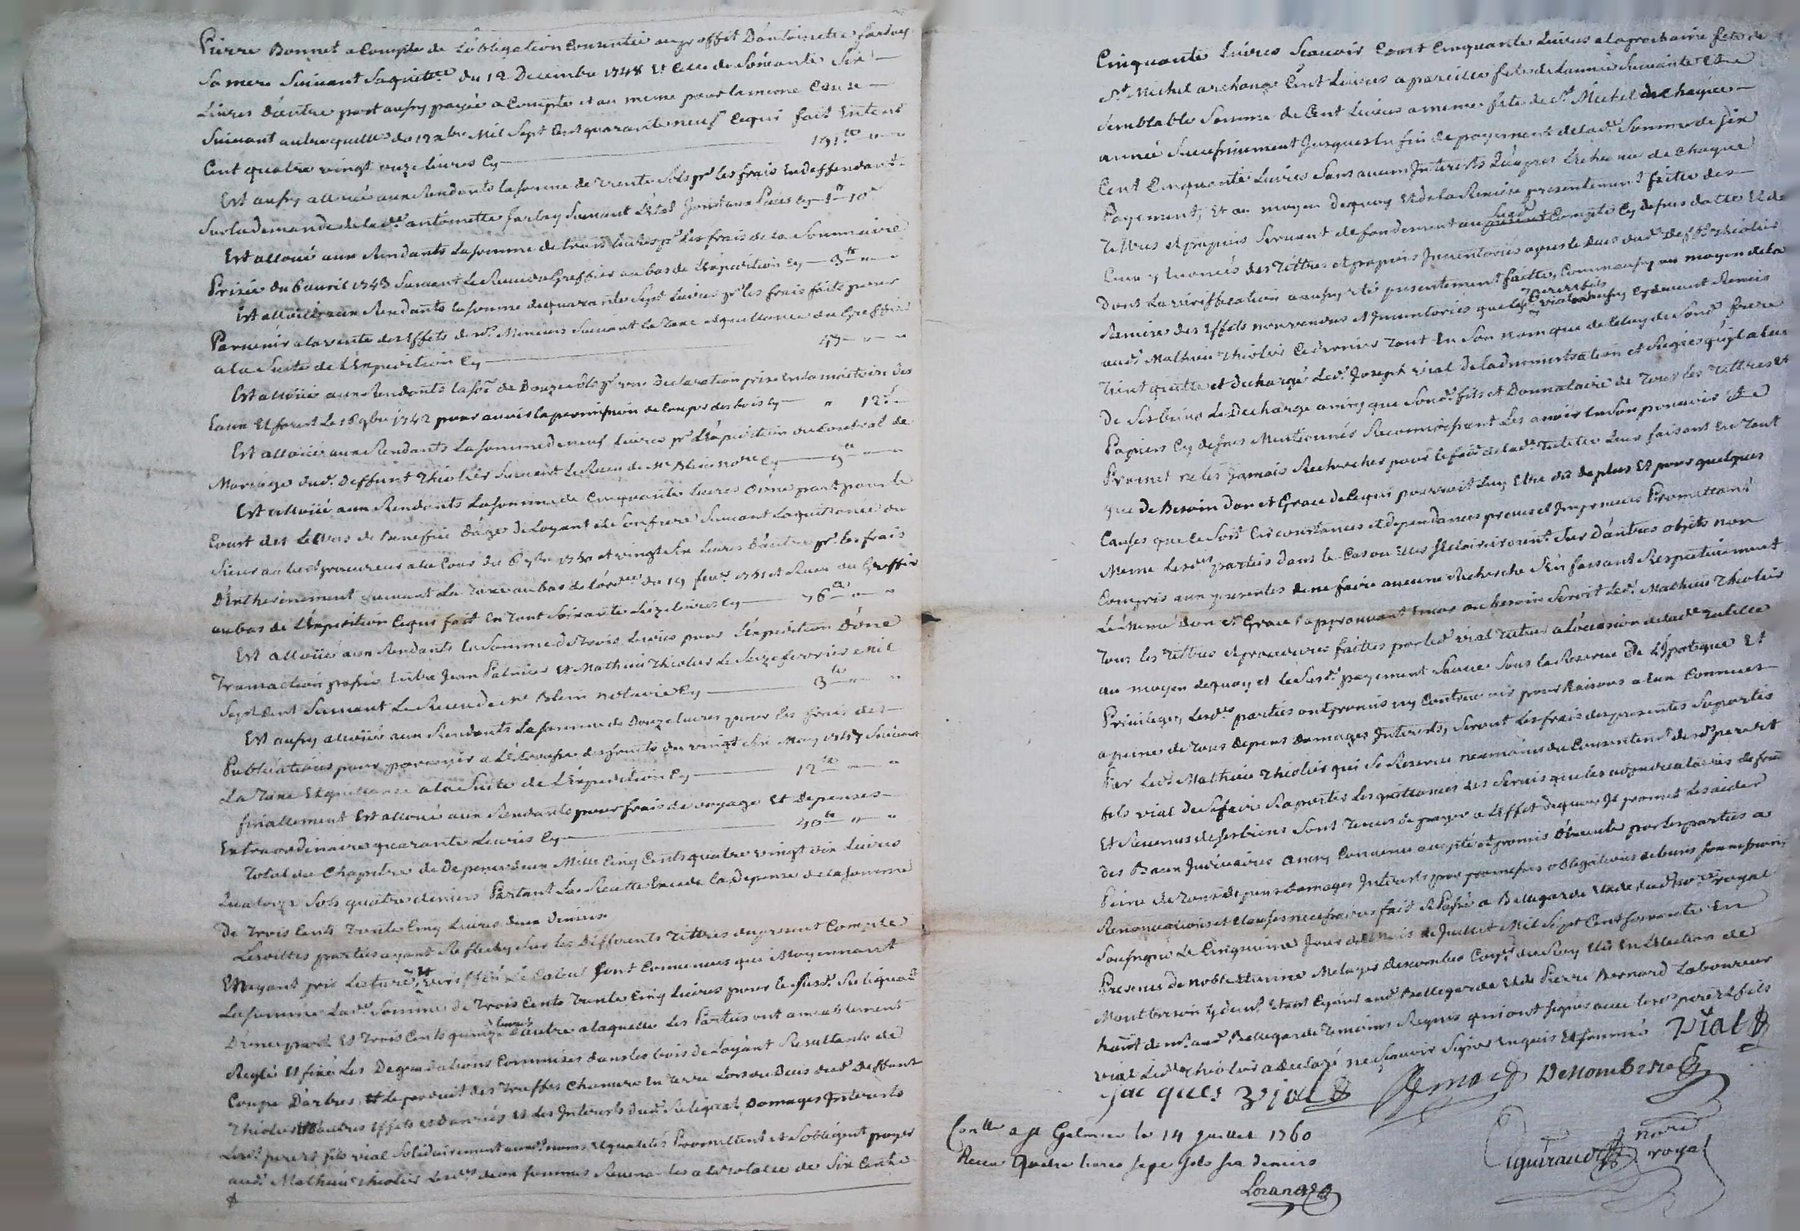 Pierre Bonnet a Compte de Lobligation Consentie au proffit Dantoinette farlay
Sa mere Suivant Saquittce du 12 Decembre 1748 Et Celle de Soixante Six
Livres d'autre part aussy payée a Compte et au meme pour la meme Cause
Suivant autre quittce du 12 xbre Mil Sept Cent quarante neuf Ce qui fait En tout
Cent quatre vingt onze livres Cy 191lt " "
Est aussy alloüé aux Rendants la somme de trente Sols pr les frais En deffendant
Sur la demande de lade antoinette farlay Suivant Cy 1lt 10s
Est alloué aux Rendants La somme de trois livres pr les frais de la Sommaire
Prisée du 6 avril 1743 Suivant Le Receu du Greffier au bas de l'Expedition Cy 3lt " "
Est alloüée aux Rendants La somme de quarante Sept Livres pr les frais faits pour
Parvenir a la vente des Effets desd. Mineurs Suivant la Taxe et quittance du Greffier
a la Suite de L'Expedition Cy 47 " "
Est alloüé aux Rendants la so͠e de Douze sols pr une Declaration prise En la maitrise des
Eaux Et forest Le 18 9bre 1742 pour avoir la permission de Couper des bois Cy " 12s
Est alloüé aux Rendants La somme de neuf livres pr L'Expedition du Contrat de
Mariage dud. Deffunt Thiolier Suivant Le Receu de Me Blein nore Cy 9lt " "
Est alloüé aux Rendants La somme de Cinquante livres d'une part pour le
Court des Lettres de Beneffice d'age de Loyant et de Son frere Suivant la quittance du
Sieur procureur a la Cour du 6 7bre 1750 et vingt Six livres d'autre pr les frais
D'Entherinement Suivant La Taxe au bas de l'ordce du 19 fevr 1751 et Receu du Greffier
au bas de L'Expedition Ce qui fait En Tout Soixante Seize livres Cy 76lt " "
Est alloüé aux Rendants la Somme de Trois Livres pour L'Expedition D'une
Transaction passée Entre Jean Palmier Et Mathieu Thiolier Le Seize fevrier Mil
Sept Cent Suivant Le Receu de Me Blein notaire Cy 3lt " "
Est aussy alloüé aux Rendants La somme de Douze livres pour les frais des
Publications pour parvenir a L'Etrousse des fonds du vingt Six May 1747 Suivant
La Taxe Et quittance a la Suite de L'Expedition Cy 12lt " "
finallement Est alloué aux Rendants pour frais de voyage Et Depenses
Extraordinaires quarante Livres Cy 40lt " "
Total du Chapitre de Depense deux Mille Cinq Cents quatre vingt dix Livres
Quatorze Sols quatre deniers Partant La Recette Excede La Depense de la somme
De Trois Cents Trente Cinq Livres deux deniers
Lesdittes parties ayant Reflechy Sur les Differents Tittres du present Compte
Et Ayant pris Lecture Et veriffié Le Calcul Sont Convenues que Moyennant
La somme Lad. Somme de Trois Cents Trente Cinq Livres pour le susd. Reliquat
D'une part Et Trois Cents quinze livres d'autre a laquelle Les Parties ont amiablement
Reglé Et fixé Les Degradations Commises dans les bois de Loyant Resultants de
Coupe D'arbres, Et Le produit des Truffes Chanvre En Terre Lors du Deces dud. Deffunt
Thiolier Et autres Effets et Denrées Et des Interets dud. Reliquat Domages Interets
Lesd. pere et fils vial Solidairement auxd. noms Et qualités Promettent et S'obligent payer
aud. Mathieu Thiolier Lesd. deux sommes Revenantes a la Totalle de Six Cents
Cinquante Livres Scavoir Cent Cinquante Livres a la prochaine fete de
St Michel archange Cent Livres a pareille fete de L'année Suivante Et
Semblable Somme de Cent Livres a meme fete de St Michel de Chaque
année Successivement Jusques En fin de payement de lad. Somme de Six
Cent Cinquante Livres Sans aucun Interets Qu'apres L'echeance de Chaque
Payement, Et au moyen Dequoy Et de la Remise presentement faitte des
Tittres et papiers Servant de fondement au susd. Compte Cy dessus datté Et de
Ceux y Enoncés des Tittres et papiers Inventoriés apres le Deces dud. Deffunt Thiolier
Dont La veriffication a aussy Eté presentement faitte, Comme aussy au moyen de la
Remise des Effets non vendus et Inventoriés que lesd. pere et fils vial ont aussy Cy devant Remis
aud. Mathieu Thiolier Ce dernier Tant En Son nom que de Celuy de Sond. frere
Tient quitte et decharge Led. Joseph vial de Ladministration et Regie qu'il a eue
De Ses biens Le Decharge ainsy que Sond. fils et Donnataire de Tous les Tittres et
Papiers Cy dessus Mentionnés Reconnoissant Les avoir En Son pouvoir Et
Promet ne les Jamais Rechercher pour le fait de lad. Tutelle Leur faisant En Tout
que de Besoin Don et Grace de Ce qui pourroit Luy Etre dû de plus Et pour quelques
Causes que Ce Soit Circonstances et dependances preveües et Impreveües Promettant
Meme Lesd. parties dans le Cas ou Elles Sur d'autres objets non
Compris aux presentes de ne faire aucune Recherche S'En faisant Respectivement
La Meme don Et Grace approuvant En cas de besoin Seroit Led. Mathieu Thiolier
Tous les Tittres et procedures faittes par led. vial Tuteur a loccasion de lad. Tutelle
au moyen dequoy et le Susd. payement Sous la Reserve De L'Ypoteque Et
Privileges, Lesd. parties ont promis ny Contrevenir pour Raisons a Eux Connues
a peine de Tous depens Domages Interests, Seront Les frais des presentes Suportés
Par Led. Mathieu Thiolier qui Se Reserve neanmoins du Consentemt desd. pere et
fils vial De Se faire Raporter Les quittances des Servis que les adjudicataires des fonds
Et Revenus de Ses biens Sont Tenus de payer a L'Effet dequoy Il promet Les aider
des Baux Judiciaires ainsy Convenu accepté et promis D'executer par les parties a
Peine de Tous depens domages Interets par promesses obligations de biens soumissions
Renonciations et clauses necessaires fait Et Passé a Bellegarde Etude dud. nore royal
Soussigné Le Cinquieme Jour du Mois de Juillet Mil Sept Cent soixante En
Presence de noble Etienne Metayer Descombes Coner du Roy Elu En L'Election de
Montbrison y demt Etant Ce jour aud. Bellegarde Et de Pierre Bernard Laboureur
habitt de md. aud. Bellegarde Temoins Requis qui ont signé avec lesd. pere Et fils
vial Led. Thiolier a declaré ne Scavoir Signer Enquis Et sommé Vial
Jacques vial Bernard Descombes
Guiraud nore royal
Conlle a st Galmier le 14 juillet 1760
Receu quatre livres sept sols six deniers
Loranges